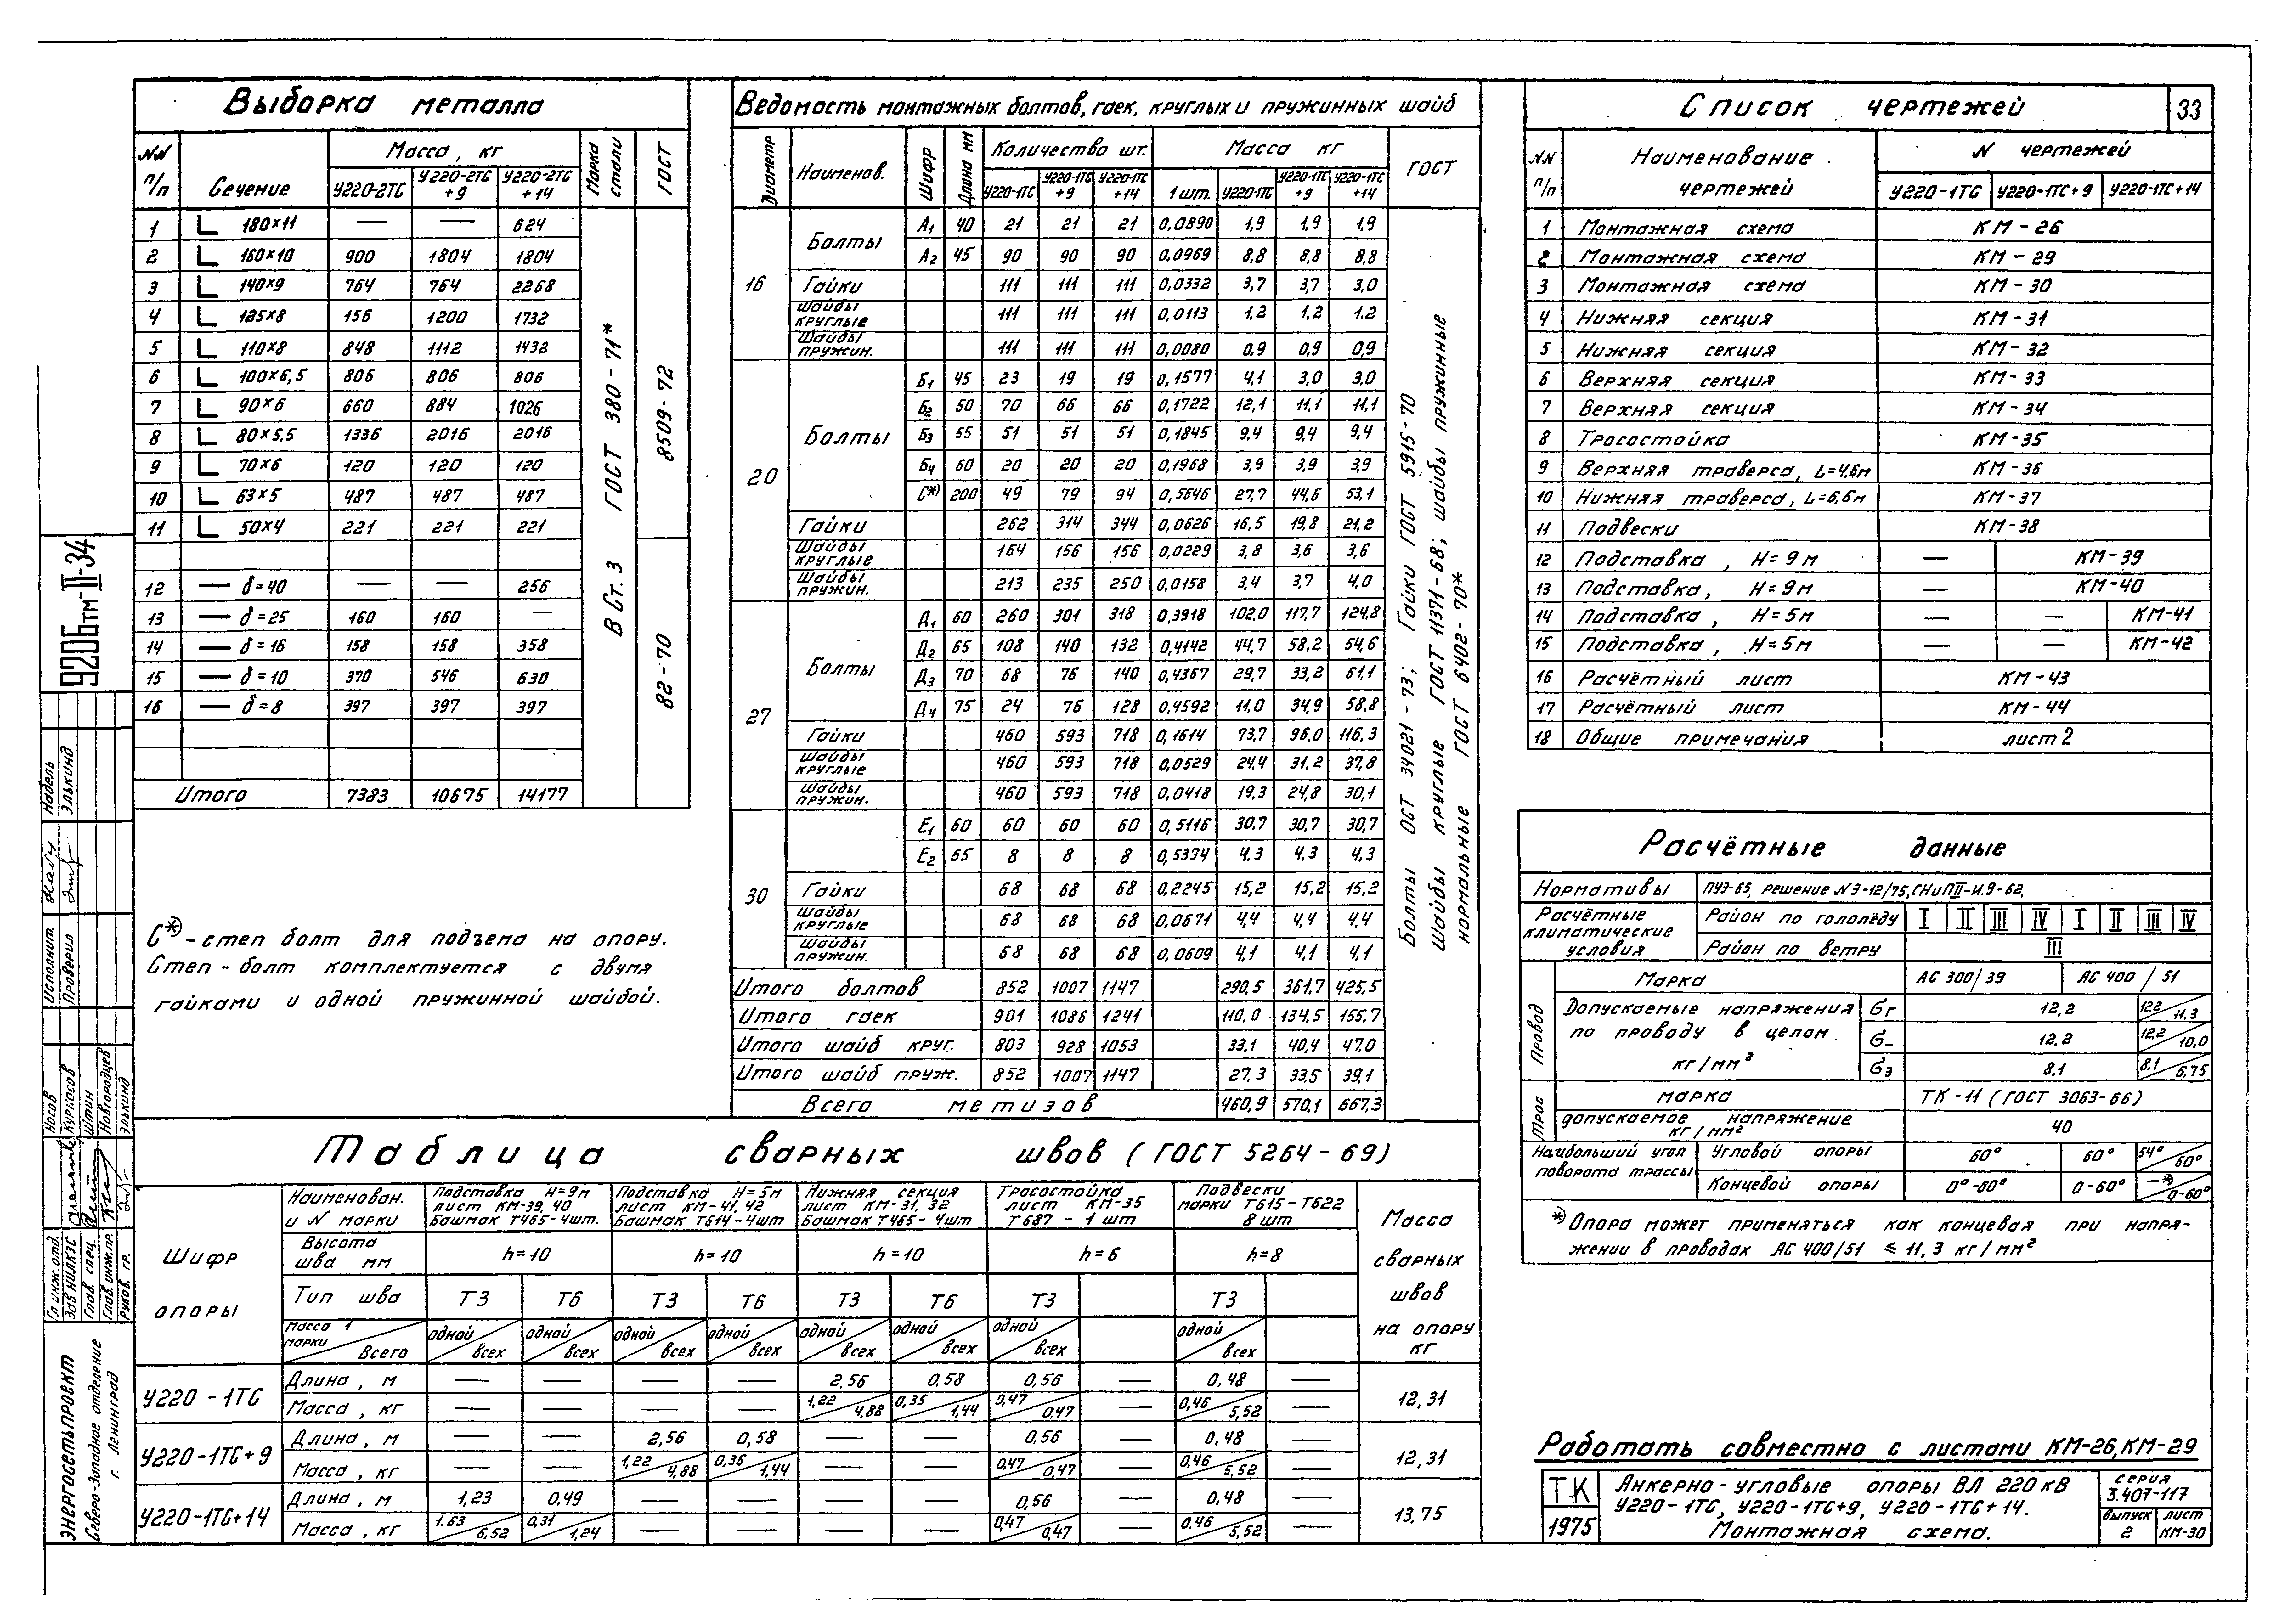 33
Выборка металла
NN п/п | Сечение | Масса, кг | Марка стали | ГОСТ
У220-2ТС | У220-2ТС +9 | У220-2ТС +14
1 L 180×11 — — 624
2 L 160×10 900 1804 1804
3 L 140×9 764 764 2268
4 L 125×8 156 1200 1732
5 L 110×8 848 1112 1432
6 L 100×6,5 806 806 806
7 L 90×6 660 884 1026
8 L 80×5,5 1336 2016 2016
9 L 70×6 120 120 120
10 L 63×5 487 487 487
11 L 50×4 221 221 221
12 — δ=40 — — 256
13 — δ=25 160 160 —
14 — δ=16 158 158 358
15 — δ=10 370 546 630
16 — δ=8 397 397 397
Итого 7383 10675 14177
В Ст. 3 ГОСТ 380-71*
8509-72
82-70
С*)-степ болт для подъема на опору.
Степ-болт комплектуется с двумя
гайками и одной пружинной шайбой.
Ведомость монтажных болтов, гаек, круглых и пружинных шайб
Диаметр | Наименов. | Шифр | Длина мм | Количество шт. | Масса кг | ГОСТ
У220-1ТС | У220-1ТС +9 | У220-1ТС +14 | 1 шт. | У220-1ТС | У220-1ТС +9 | У220-1ТС +14
16 Болты А1 40 21 21 21 0,0890 1,9 1,9 1,9
А2 45 90 90 90 0,0969 8,8 8,8 8,8
Гайки 111 111 111 0,0332 3,7 3,7 3,0
Шайбы круглые 111 111 111 0,0113 1,2 1,2 1,2
Шайбы пружин. 111 111 111 0,0080 0,9 0,9 0,9
20 Болты Б1 45 23 19 19 0,1577 4,1 3,0 3,0
Б2 50 70 66 66 0,1722 12,1 11,1 11,1
Б3 55 51 51 51 0,1845 9,4 9,4 9,4
Б4 60 20 20 20 0,1968 3,9 3,9 3,9
С*) 200 49 79 94 0,5646 27,7 44,6 53,1
Гайки 262 314 344 0,0626 16,5 19,8 21,2
Шайбы круглые 164 156 156 0,0229 3,8 3,6 3,6
Шайбы пружин. 213 235 250 0,0158 3,4 3,7 4,0
27 Болты Д1 60 260 301 318 0,3918 102,0 117,7 124,8
Д2 65 108 140 132 0,4142 44,7 58,2 54,6
Д3 70 68 76 140 0,4367 29,7 33,2 61,1
Д4 75 24 76 128 0,4592 11,0 34,9 58,8
Гайки 460 593 718 0,1614 73,7 96,0 116,3
Шайбы круглые 460 593 718 0,0529 24,4 31,2 37,8
Шайбы пружин. 460 593 718 0,0418 19,3 24,8 30,1
30 Е1 60 60 60 60 0,5116 30,7 30,7 30,7
Е2 65 8 8 8 0,5334 4,3 4,3 4,3
Гайки 68 68 68 0,2245 15,2 15,2 15,2
Шайбы круглые 68 68 68 0,0671 4,4 4,4 4,4
Шайбы пружин. 68 68 68 0,0609 4,1 4,1 4,1
Итого болтов 852 1007 1147 290,5 361,7 425,5
Итого гаек 901 1086 1241 110,0 134,5 155,7
Итого шайб круг. 803 928 1053 33,1 40,4 47,0
Итого шайб пруж. 852 1007 1147 27,3 33,5 39,1
Всего метизов 460,9 570,1 667,3
Болты ОСТ 34021-73; Гайки ГОСТ 5915-70
Шайбы круглые ГОСТ 11371-68; шайбы пружинные
нормальные ГОСТ 6402-70*
Список чертежей
NN п/п | Наименование чертежей | N чертежей
У220-1ТС | У220-1ТС+9 | У220-1ТС+14
1 Монтажная схема КМ-26
2 Монтажная схема КМ-29
3 Монтажная схема КМ-30
4 Нижняя секция КМ-31
5 Нижняя секция КМ-32
6 Верхняя секция КМ-33
7 Верхняя секция КМ-34
8 Тросостойка КМ-35
9 Верхняя траверса, L=4,6м КМ-36
10 Нижняя траверса, L=6,6м КМ-37
11 Подвески КМ-38
12 Подставка, H=9м — КМ-39
13 Подставка, H=9м — КМ-40
14 Подставка, H=5м — — КМ-41
15 Подставка, H=5м — — КМ-42
16 Расчётный лист КМ-43
17 Расчётный лист КМ-44
18 Общие примечания лист 2
Расчётные данные
Нормативы ПУЭ-65, Решение NЭ-12/75, СНиПII-И.9-62,
Расчётные климатические условия
Район по гололёду I II III IV I II III IV
Район по ветру III
Провод
Марка АС 300/39 АС 400/51
Допускаемые напряжения по проводу в целом. кг/мм²
σг 12,2 12,2/11,3
σ_ 12,2 12,2/10,0
σэ 8,1 8,1/6,75
Трос
марка ТК-11 (ГОСТ 3063-66)
допускаемое напряжение кг/мм² 40
Наибольший угол поворота трассы
Угловой опоры 60° 60° 54°/60°
Концевой опоры 0°-60° 0-60° —*)/0-60°
*) Опора может применяться как концевая при напря-
жении в проводах АС 400/51 ≤ 11,3 кг/мм²
Таблица сварных швов (ГОСТ 5264-69)
Шифр опоры
Наименован. и N марки
Подставка H=9м лист КМ-39, 40 Башмак Т465-4шт.
Подставка H=5м лист КМ-41, 42 Башмак Т614-4шт
Нижняя секция лист КМ-31, 32 Башмак Т465-4шт
Тросостойка лист КМ-35 Т687-1 шт
Подвески марки Т615-Т622 8 шт
Масса сварных швов на опору кг
Высота шва мм h=10 h=10 h=10 h=6 h=8
Тип шва Т3 Т6 Т3 Т6 Т3 Т6 Т3 Т3
Масса 1 марки / Всего одной/всех одной/всех одной/всех одной/всех одной/всех одной/всех одной/всех одной/всех
У220-1ТС Длина, м — — — — 2,56 0,58 0,56 — 0,48 — 12,31
Масса, кг — — — — 1,22/4,88 0,35/1,44 0,47/0,47 — 0,46/5,52 —
У220-1ТС+9 Длина, м — — 2,56 0,58 — — 0,56 — 0,48 — 12,31
Масса, кг — — 1,22/4,88 0,36/1,44 — — 0,47/0,47 — 0,46/5,52 —
У220-1ТС+14 Длина, м 1,23 0,49 — — — — 0,56 — 0,48 — 13,75
Масса, кг 1.63/6,52 0,31/1,24 — — — — 0,47/0,47 — 0,46/5,52 —
Работать совместно с листами КМ-26, КМ-29
ТК 1975
Анкерно-угловые опоры ВЛ 220 кВ
У220-1ТС, У220-1ТС+9, У220-1ТС+14.
Монтажная схема.
серия 3.407-117
выпуск 2
лист КМ-30
9206тм-II-34
Исполнит. Надель
Проверил Элькинд
Гл. инж. отд. Носов
Зав НИЛКЭС Курносов
Глав. спец. Штин
Глав. инж. пр. Новгородцев
Руков. гр. Элькинд
ЭНЕРГОСЕТЬПРОЕКТ
Северо-Западное отделение
г. Ленинград